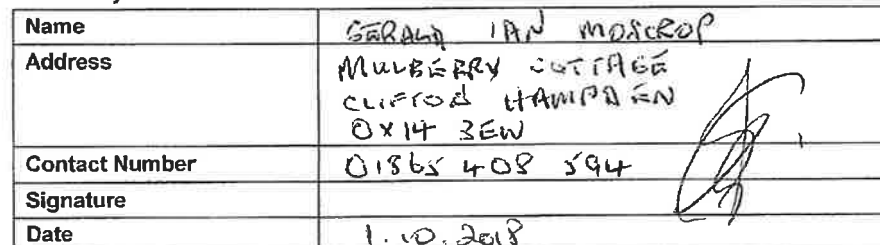 Name GERALD IAN MOSCROP
Address MULBERRY COTTAGE
CLIFTON HAMPDEN
OX14 3EW
Contact Number 01865 408 594
Signature
Date 1.10.2018